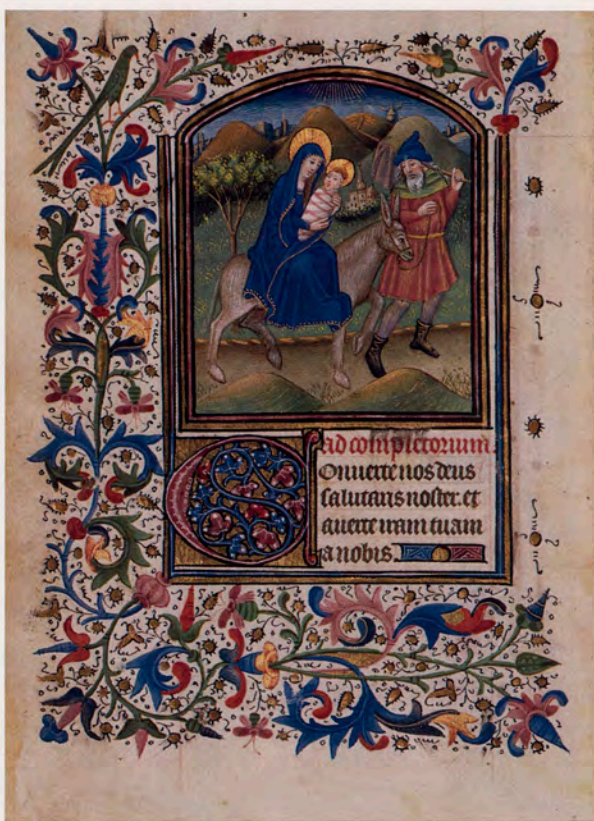 ad completorium.
Conuerte nos deus
salutaris noster. et
auerte iram tuam
a nobis.